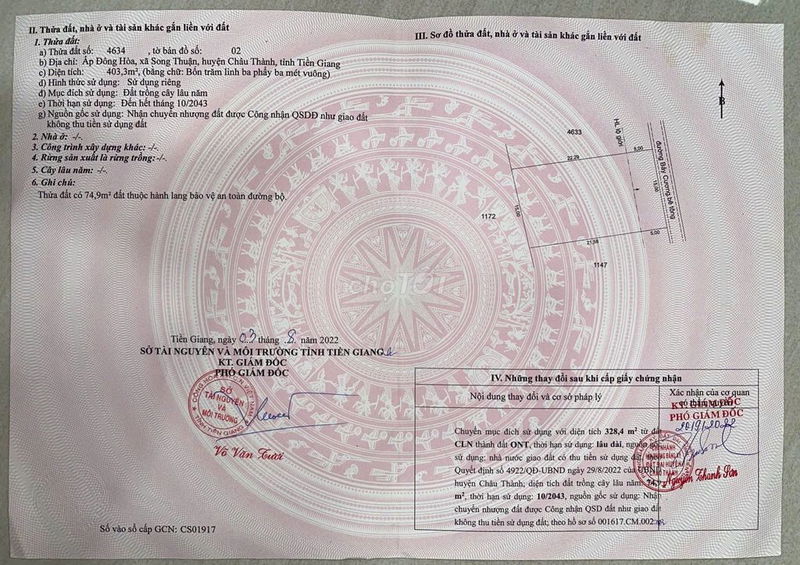 II. Thửa đất, nhà ở và tài sản khác gắn liền với đất
1. Thửa đất:
a) Thửa đất số: 4634 , tờ bản đồ số: 02
b) Địa chỉ: Ấp Đông Hòa, xã Song Thuận, huyện Châu Thành, tỉnh Tiền Giang
c) Diện tích: 403,3m², (bằng chữ: Bốn trăm linh ba phẩy ba mét vuông)
d) Hình thức sử dụng: Sử dụng riêng
đ) Mục đích sử dụng: Đất trồng cây lâu năm
e) Thời hạn sử dụng: Đến hết tháng 10/2043
g) Nguồn gốc sử dụng: Nhận chuyển nhượng đất được Công nhận QSDĐ như giao đất
không thu tiền sử dụng đất
2. Nhà ở: -/-.
3. Công trình xây dựng khác: -/-.
4. Rừng sản xuất là rừng trồng: -/-.
5. Cây lâu năm: -/-.
6. Ghi chú:
Thửa đất có 74,9m² đất thuộc hành lang bảo vệ an toàn đường bộ.
Tiền Giang, ngày 03 tháng 8 năm 2022
SỞ TÀI NGUYÊN VÀ MÔI TRƯỜNG TỈNH TIỀN GIANG
KT. GIÁM ĐỐC
PHÓ GIÁM ĐỐC
SỞ
TÀI NGUYÊN
VÀ
MÔI TRƯỜNG
TỈNH TIỀN GIANG
Võ Văn Tươi
Số vào sổ cấp GCN: CS01917
III. Sơ đồ thửa đất, nhà ở và tài sản khác gắn liền với đất
B
4633
HL lộ giới
22,29
5,00
đường Bảy Cương bê tông
15,00
1172
21,34
5,00
1147
choTỐT
IV. Những thay đổi sau khi cấp giấy chứng nhận
Nội dung thay đổi và cơ sở pháp lý
Xác nhận của cơ quan
có thẩm quyền
KT. GIÁM ĐỐC
PHÓ GIÁM ĐỐC
Chuyển mục đích sử dụng với diện tích 328,4 m² từ đất
CLN thành đất ONT, thời hạn sử dụng: lâu dài, nguồn gốc
sử dụng: nhà nước giao đất có thu tiền sử dụng đất,
Quyết định số 4922/QĐ-UBND ngày 29/8/2022 của UBND
huyện Châu Thành; diện tích đất trồng cây lâu năm
m², thời hạn sử dụng: 10/2043, nguồn gốc sử dụng: Nhận
chuyển nhượng đất được Công nhận QSD đất như giao đất
không thu tiền sử dụng đất; theo hồ sơ số 001617.CM.002
Nguyễn Thanh Sơn